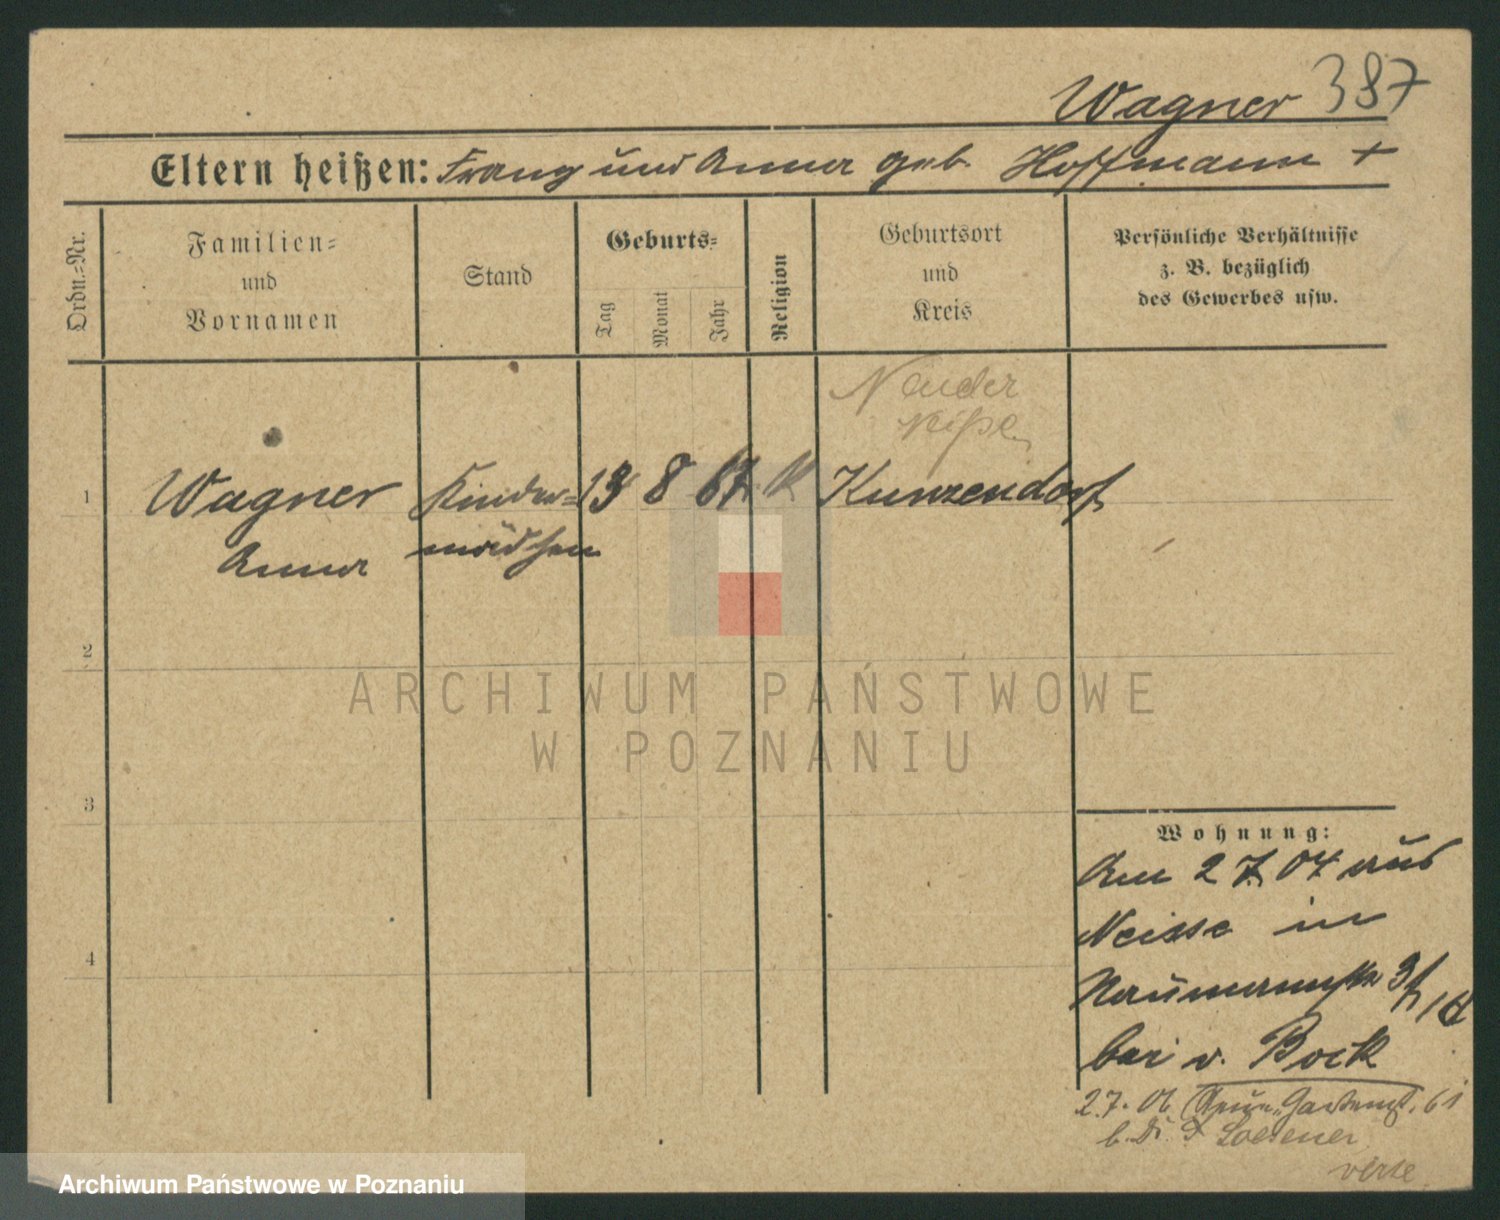 Wagner 387
Eltern heißen: Franz und Anna geb. Hoffmann +
Ordn.=Nr.
Familien=
und
Vornamen
Stand
Geburts=
Tag
Monat
Jahr
Religion
Geburtsort
und
Kreis
Persönliche Verhältnisse
z. B. bezüglich
des Gewerbes usw.
Neisse
1
Wagner
Anna
Kinder=
mädchen
13 8 67 k
Kunzendorf
2
3
4
ARCHIWUM PAŃSTWOWE
W POZNANIU
Wohnung:
Am 2 7 04 aus
Neisse in
Naumannstr
bei v. Bock
2.7. 06 Gartenstr. 61
verte
Archiwum Państwowe w Poznaniu